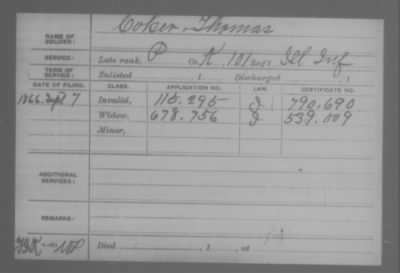 Coker, Thomas
NAME OF SOLDIER:
SERVICE: Late rank, P Co. K, 101 Reg't Ill Inf
TERM OF SERVICE: Enlisted , 1 Discharged , 1
DATE OF FILING. CLASS. APPLICATION NO. LAW. CERTIFICATE NO.
1866. Sept 7 Invalid, 115.295 790.690
Widow, 678.756 539.009
Minor,
ADDITIONAL SERVICES:
REMARKS:
Died , 1 , at